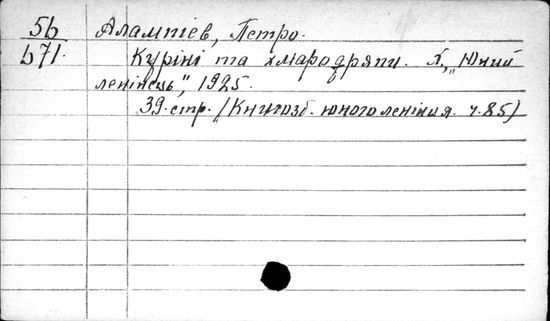 56 Аламтієв, Петро.
671. Куріні та хмародряпи. Х, „Юний
ленінець", 1925.
39 стр. (Книгозб. юного лениця. ч. 85)